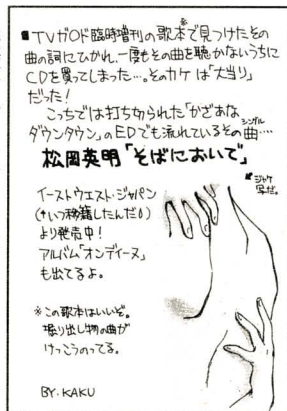 ■TVガOド臨時増刊の歌本※で見つけたその
曲の詞にひかれ、一度もその曲を聴かないうちに
CDを買ってしまった…。そのカケは「大当り」
だった!
こっちでは打ち切られた「かざあな
ダウンタウン」のEDでも流れているその曲‥‥
シングル
松岡英明「そばにおいで」
↙ジャケ
写だ。
イーストウエスト・ジャパン
(↑いつ移籍したんだ!)
より発売中!
アルバム「オンディーヌ」
も出てるよ。
※この歌本はいいぞ。
掘り出し物の曲が
けっこうのってる。
BY.KAKU